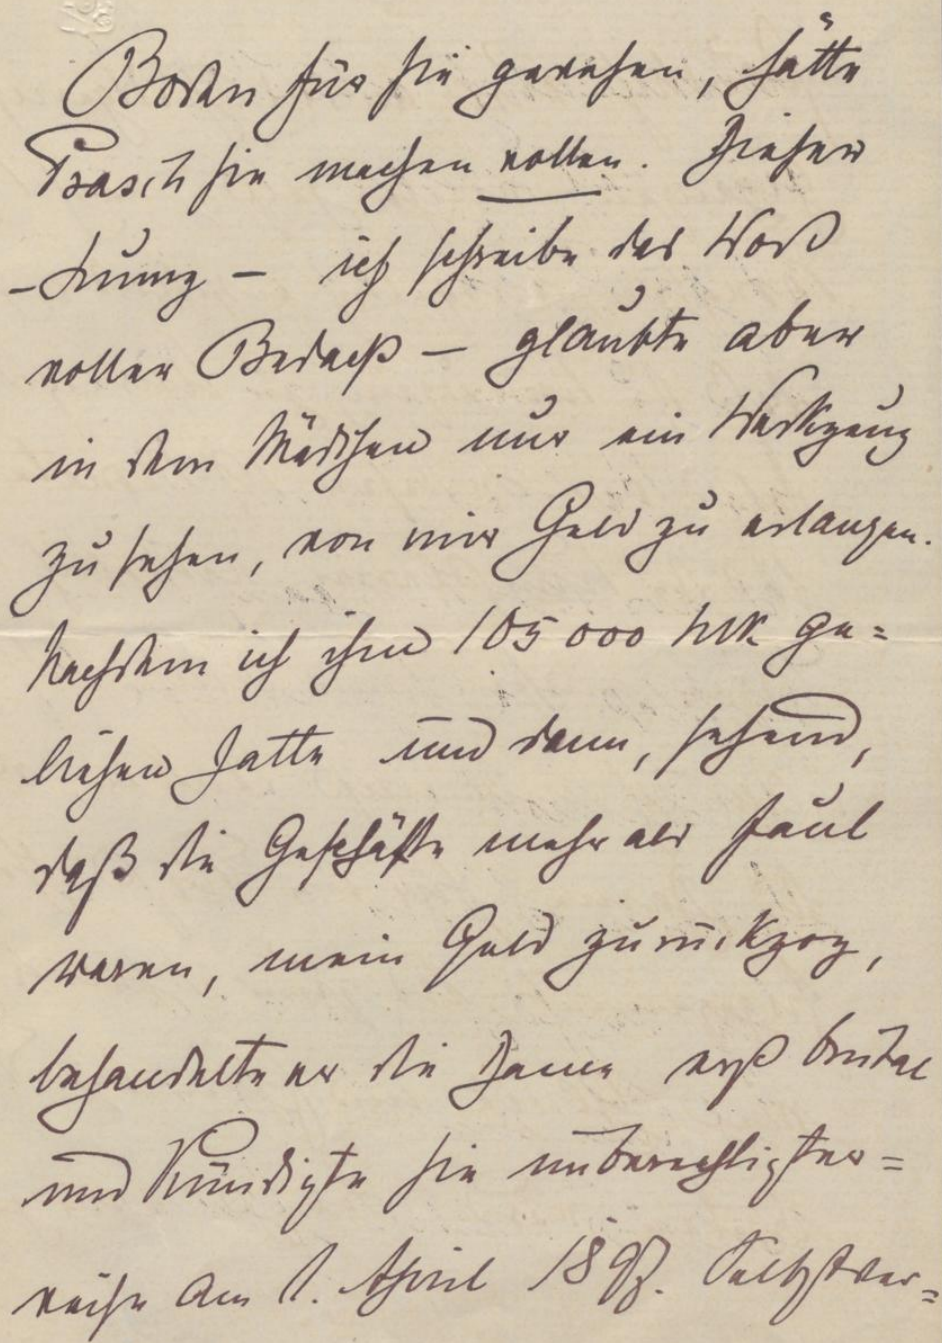 Boden für sie gewesen, hätte
Prasch sie machen wollen. Dieser
– Lump – ich schreibe das Wort
voller Bedacht – glaubte aber
in dem Mädchen nur ein Werkzeug
zu sehen, von mir Geld zu erlangen.
Nachdem ich ihm 105 000 Mk ge=
liehen hatte und dann, sehend,
daß die Geschäfte mehr als faul
waren, mein Geld zurückzog,
behandelte er die Dame erst brutal
und kündigte sie unberechtigter=
weise am 1. April 1897. Selbstver=